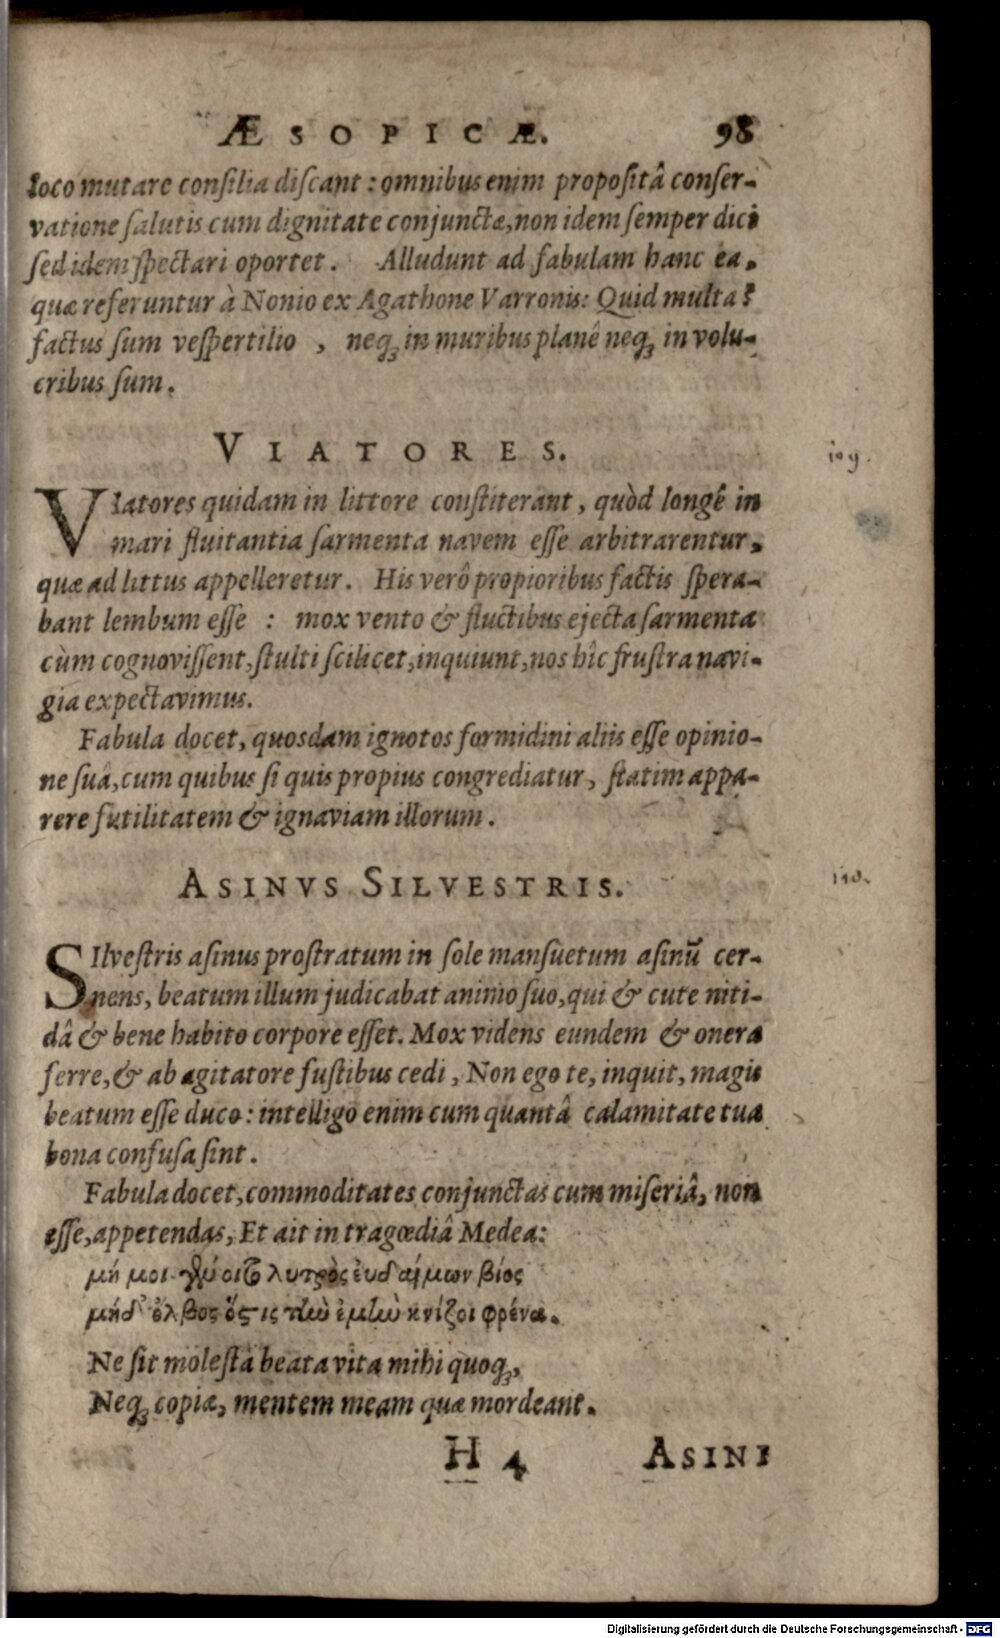 ÆSOPICÆ. 98
loco mutare consilia discant: omnibus enim propositâ conser-
vatione salutis cum dignitate conjunctæ, non idem semper dici
sed idem spectari oportet. Alludunt ad fabulam hanc ea,
quæ referuntur à Nonio ex Agathone Varronis: Quid multa?
factus sum vespertilio, neq; in muribus planè neq; in volu-
cribus sum.
VIATORES.
109.
VIatores quidam in littore constiterant, quòd longê in
mari fluitantia sarmenta navem esse arbitrarentur,
quæ ad littus appelleretur. His verô propioribus factis spera-
bant lembum esse : mox vento & fluctibus ejecta sarmenta
cùm cognovissent, stulti scilicet, inquiunt, nos hîc frustra navi-
gia expectavimus.
Fabula docet, quosdam ignotos formidini aliis esse opinio-
ne suâ, cum quibus si quis propius congrediatur, statim appa-
rere futilitatem & ignaviam illorum.
ASINVS SILVESTRIS.
110.
SIlvestris asinus prostratum in sole mansuetum asinũ cer-
nens, beatum illum judicabat animo suo, qui & cute niti-
dâ & bene habito corpore esset. Mox videns eundem & onera
ferre, & ab agitatore fustibus cedi, Non ego te, inquit, magis
beatum esse duco: intelligo enim cum quantâ calamitate tua
bona confusa sint.
Fabula docet, commoditates conjunctas cum miseriâ, non
esse, appetendas, Et ait in tragœdiâ Medea:
μή μοι γένοιτο λυπρὸς ἐυδαίμων βίος
μήδ' ὄλβος ὅστις τὴν ἐμὴν κνίζοι φρένα.
Ne sit molesta beata vita mihi quoq;,
Neq; copiæ, mentem meam quæ mordeant.
H 4 ASINI
Digitalisierung gefördert durch die Deutsche Forschungsgemeinschaft - DFG